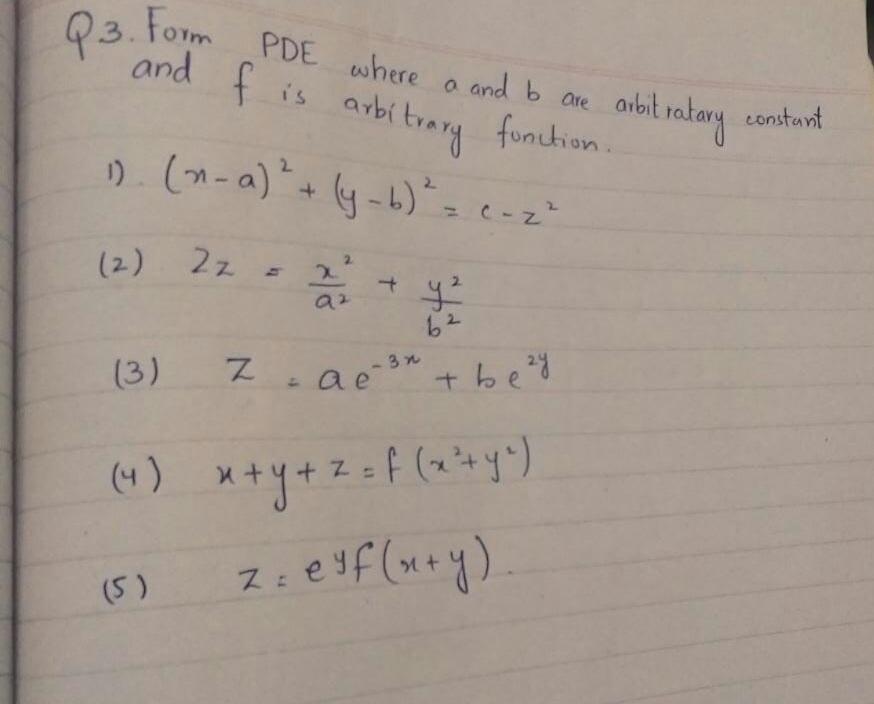 Q3. Form PDE where a and b are arbitratary constant
and f is arbitrary function.
1). (x-a)² + (y-b)² = c-z²
(2) 2z = x²/a² + y²/b²
(3) z = ae⁻³ˣ + be²ʸ
(4) x+y+z = f(x²+y²)
(5) z = eʸf(x+y).